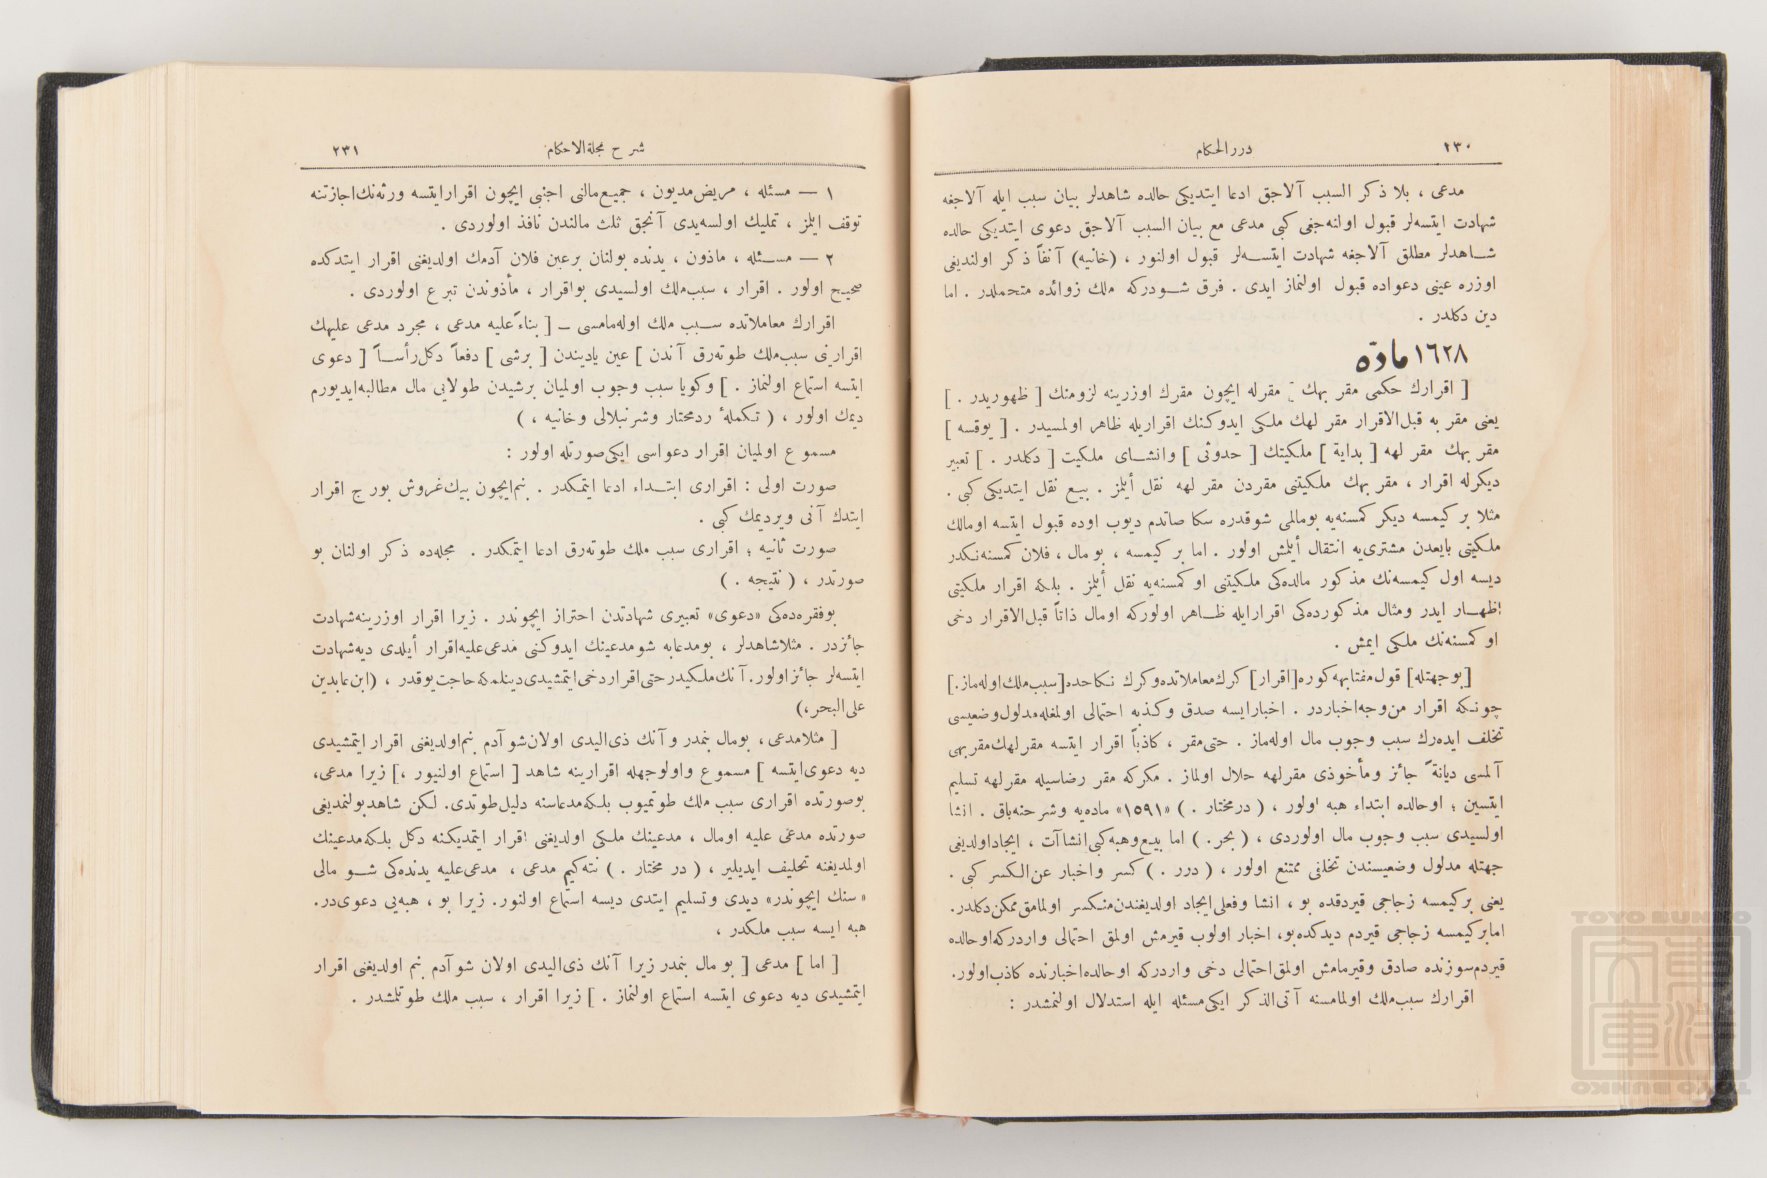 ٢٣٠
دررالحكام
مدعى ، بلا ذكر السبب آلاجق ادعا ايتديكى حالده شاهدلر بيان سبب ايله آلاجغه
شهادت ايتسه‌لر قبول اولنه‌جغى كبى مدعى مع بيان السبب آلاجق دعوى ايتديكى حالده
شاهدلر مطلق آلاجغه شهادت ايتسه‌لر قبول اولنور ، (خانيه) آنفاً ذكر اولنديغى
اوزره عينى دعواده قبول اولنماز ايدى . فرق شودركه ملك زوائده متحملدر . اما
دين دكلدر .
١٦٢٨ مادّه
[ اقرارك حكمى مقر بهك ] مقرله ايچون مقرك اوزرينه لزومنك [ ظهوريدر . ]
يعنى مقر به قبل‌الاقرار مقر لهك ملكى ايدوكنك اقراريله ظاهر اولمسيدر . [ يوقسه ]
مقر بهك مقر لهه [ بداية ] ملكيتك [ حدوثى ] وانشاى ملكيت [ دكلدر . ] تعبير
ديكرله اقرار ، مقر بهك ملكيتنى مقردن مقر لهه نقل أيلمز . بيع نقل ايتديكى كبى .
مثلا بر كيمسه ديكر كمسنه‌يه بومالمى شوقدره سكا صاتدم ديوب اوده قبول ايتسه اومالك
ملكيتى بايعدن مشترى‌يه انتقال أيلمش اولور . اما بر كيمسه ، بو مال ، فلان كمسنه‌نكدر
ديسه اول كيمسه‌نك مذكور مالده‌كى ملكيتنى او كمسنه‌يه نقل أيلمز . بلكه اقرار ملكيتى
اظهار ايدر ومثال مذكورده‌كى اقرارايله ظاهر اولوركه اومال ذاتاً قبل‌الاقرار دخى
او كمسنه‌نك ملكى ايمش .
[بوجهتله] قول مفتابهه كوره [اقرار] كرك معاملاتده وكرك نكاحده [سبب ملك اوله‌ماز.]
چونكه اقرار من وجه اخباردر . اخبارايسه صدق وكذبه احتمالى اولمغله مدلول وضعيسى
تخلف ايده‌رك سبب وجوب مال اوله‌ماز . حتى مقر ، كاذباً اقرار ايتسه مقر لهك مقر بهى
آلمسى ديانةً جائز ومأخوذى مقر لهه حلال اولماز . مكركه مقر رضاسيله مقر لهه تسليم
ايتسين ؛ اوحالده ابتداء هبه اولور ، ( درمختار . ) «١٥٩١» ماده‌يه وشرحنه باق . انشا
اولسيدى سبب وجوب مال اولوردى ، ( بحر . ) اما بيع وهبه كبى انشاآت ، ايجاد اولديغى
جهتله مدلول وضعيسندن تخلفى ممتنع اولور ، ( درر . ) كسر واخبار عن الكسر كبى .
يعنى بر كيمسه زجاجى قيردقده بو ، انشا وفعلى ايجاد اولديغندن منكسر اولمامق ممكن دكلدر.
امابر كيمسه زجاجى قيردم ديدكده بو، اخبار اولوب قيرمش اولمق احتمالى واردركه اوحالده
قيردم سوزنده صادق وقيرمامش اولمق احتمالى دخى واردركه اوحالده اخبارنده كاذب اولور.
اقرارك سبب ملك اولمامسنه آتى الذكر ايكى مسئله ايله استدلال اولنمشدر :
شرح مجلةالاحكام
٢٣١
١ — مسئله ، مريض مديون ، جميع مالنى اجنبى ايچون اقرارايتسه ورثه‌نك اجازتنه
توقف ايلمز ، تمليك اولسه‌يدى آنجق ثلث مالندن نافذ اولوردى .
٢ — مسئله ، ماذون ، يدنده بولنان برعين فلان آدمك اولديغنى اقرار ايتدكده
صحيح اولور . اقرار ، سبب ملك اولسيدى بواقرار ، مأذوندن تبرع اولوردى .
اقرارك معاملاتده سبب ملك اوله‌مامسى ــ [ بناءً عليه مدعى ، مجرد مدعى عليهك
اقرارنى سبب ملك طوته‌رق آندن ] عين ياديندن [ برشى ] دفعاً دكل رأساً [ دعوى
ايتسه استماع اولنماز . ] وكويا سبب وجوب اولميان برشيدن طولايى مال مطالبه ايديورم
ديمك اولور ، ( تكملۀ ردمختار وشرنبلالى وخانيه ، )
مسموع اولميان اقرار دعواسى ايكى صورتله اولور :
صورت اولى : اقرارى ابتداء ادعا ايتمكدر . بنم ايچون بيك غروش بورج اقرار
ايتدك آنى ويرديمك كبى .
صورت ثانيه ؛ اقرارى سبب ملك طوته‌رق ادعا ايتمكدر . مجله‌ده ذكر اولنان بو
صورتدر ، ( نتيجه . )
بوفقره‌ده‌كى «دعوى» تعبيرى شهادتدن احتراز ايچوندر . زيرا اقرار اوزرينه شهادت
جائزدر . مثلا شاهدلر ، بومدعابه شومدعينك ايدوكنى مدعى عليه اقرار أيلدى ديه شهادت
ايتسه‌لر جائز اولور. آنك ملكيدر حتى اقرار دخى ايتمشيدى دينلمكه حاجت يوقدر ، (ابن عابدين
على البحر،)
[ مثلا مدعى ، بومال بنمدر وآنك ذى اليدى اولان شو آدم بنم اولديغنى اقرار ايتمشيدى
ديه دعوى ايتسه ] مسموع واولوجهله اقرارينه شاهد [ استماع اولنيور ،] زيرا مدعى،
بوصورتده اقرارى سبب ملك طوتميوب بلكه مدعاسنه دليل طوتدى. لكن شاهد بولنمديغى
صورتده مدعى عليه اومال ، مدعينك ملكى اولديغنى اقرار ايتمديكنه دكل بلكه مدعينك
اولمديغنه تحليف ايديلير ، ( در مختار . ) نته كيم مدعى ، مدعى عليه يدنده‌كى شو مالى
«سنك ايچوندر» ديدى وتسليم ايتدى ديسه استماع اولنور. زيرا بو ، هبه‌يى دعوى‌در.
هبه ايسه سبب ملكدر ،
[ اما ] مدعى [ بو مال بنمدر زيرا آنك ذى اليدى اولان شو آدم بنم اولديغنى اقرار
ايتمشيدى ديه دعوى ايتسه استماع اولنماز . ] زيرا اقرار ، سبب ملك طوتلمشدر .
TOYO BUNKO
東洋文庫
TOYO BUNKO